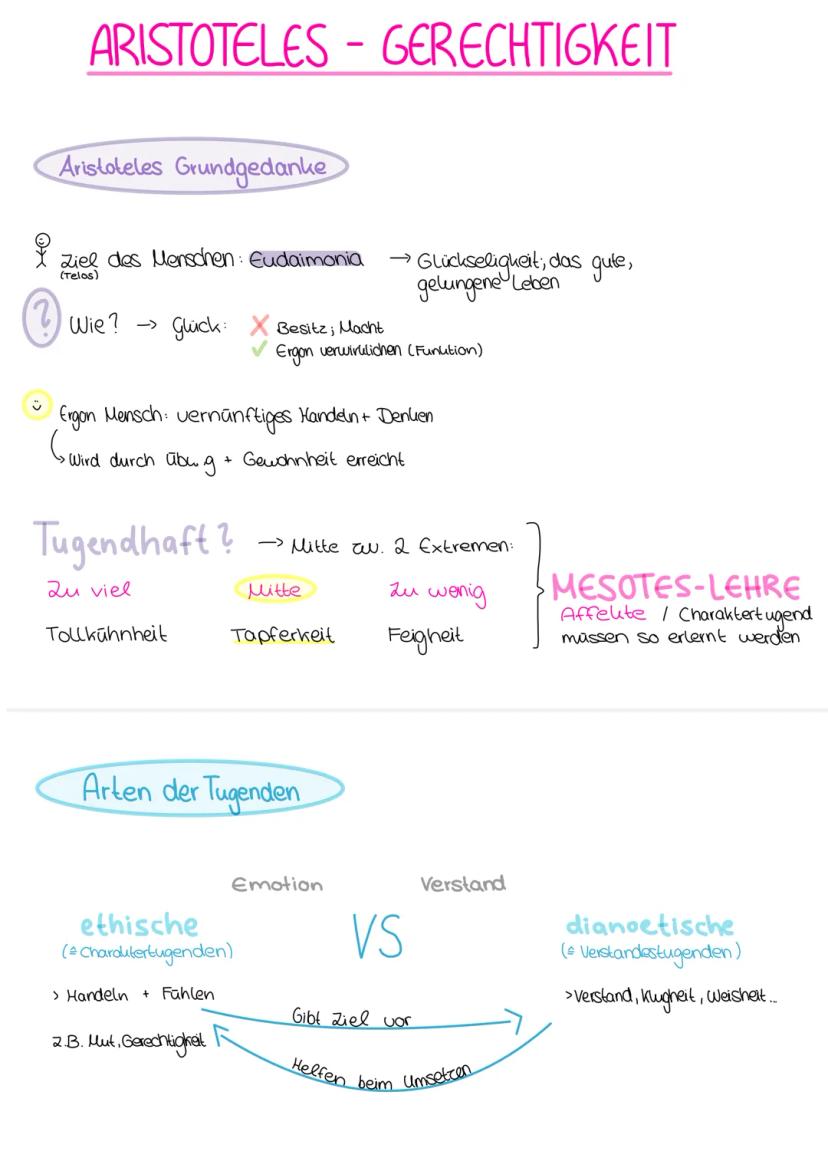 ARISTOTELES - GERECHTIGKEIT
Aristoteles Grundgedanke
Ziel des Menschen: Eudaimonia → Glückseligkeit; das gute,
(Telos)
gelungene Leben
? Wie? → Glück: ✗ Besitz; Macht
✓ Ergon verwirklichen (Funktion)
Ergon Mensch: vernünftiges Handeln + Denken
Wird durch Übu g + Gewohnheit erreicht
Tugendhaft? → Mitte zw. 2 Extremen:
Zu viel Mitte Zu wenig
MESOTES-LEHRE
Affekte / Charaktertugend
Tollkühnheit Tapferkeit Feigheit
müssen so erlernt werden
Arten der Tugenden
Emotion Verstand
ethische VS dianoetische
(≙ Charaktertugenden) (≙ Verstandestugenden)
> Handeln + Fühlen > Verstand, Klugheit, Weisheit...
Gibt Ziel vor
z.B. Mut, Gerechtigkeit
Helfen beim Umsetzen